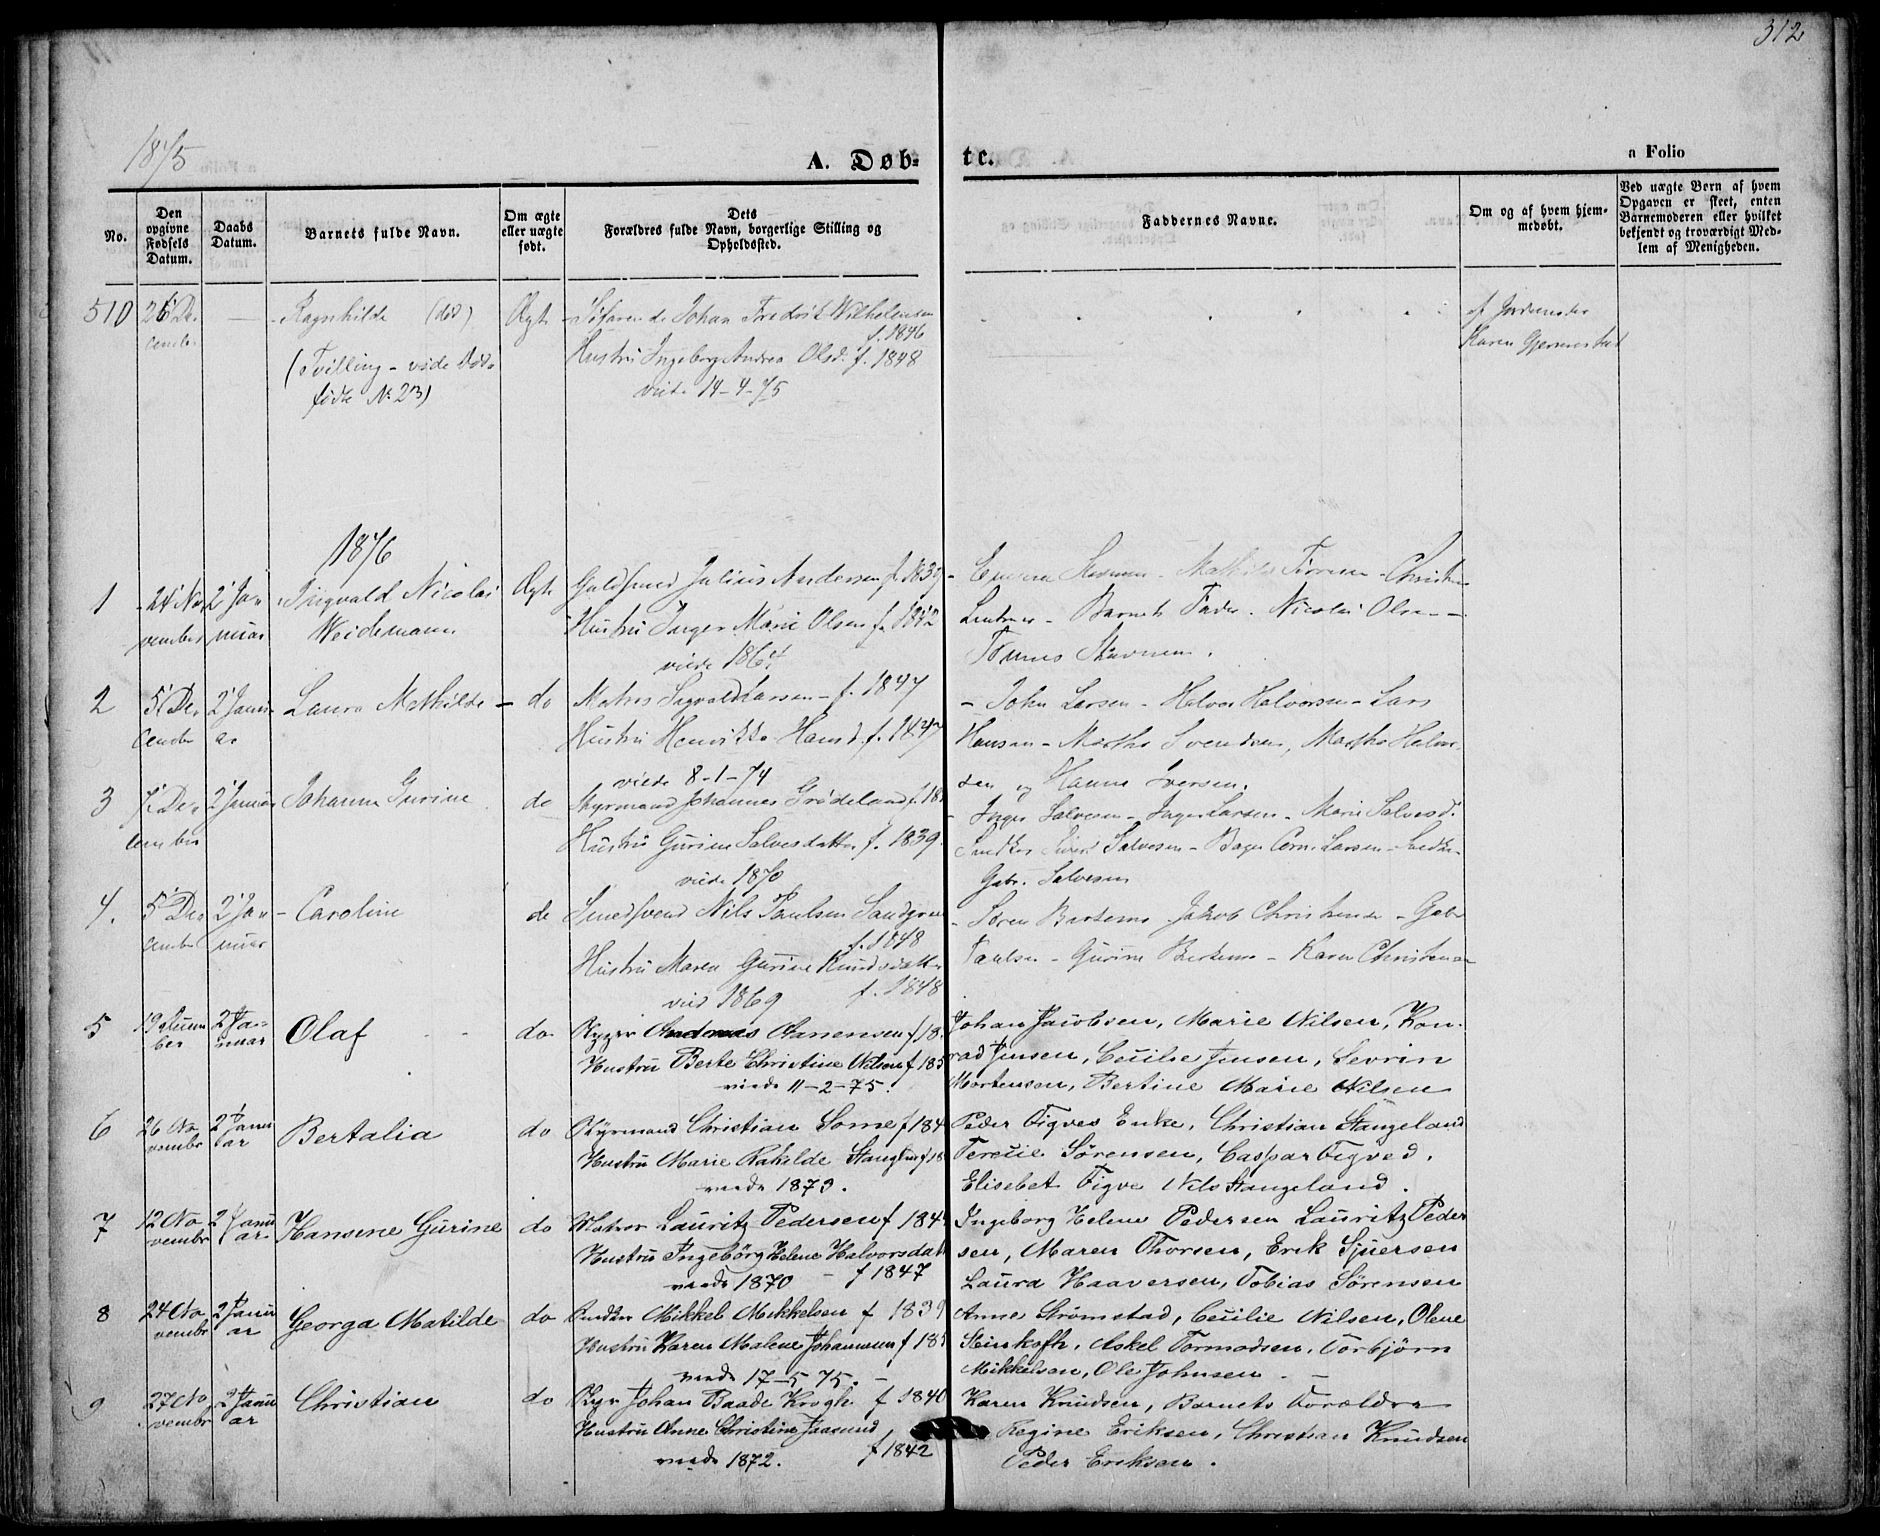 312
1875
A. Døb-
te.
a Folio
No.
Den opgivne Fødsels Datum.
Daabs Datum.
Barnets fulde Navn.
Om ægte eller uægte født.
Dets Forældres fulde Navn, borgerlige Stilling og Opholdssted.
Faddernes Navne.
Om og af hvem hjemmedøbt.
Ved uægte Børn af hvem Opgaven er skeet, enten Barnemoderen eller hvilket bekjendt og troværdigt Medlem af Menigheden.
510 26 De- — Ragnhilde (død) Ægte Søfarende Johan Fredrik Wilhelmsen
cember f. 1846
(Tvilling - vide Døde Hustru Ingeborg Andrea Olsd. f. 1848
fødte No 23) viet 14-4-75
af Jordemoder
Karen Gjermestad
1876
1 24 No- 2 Ja- Ingvald Nicolai Ægte Guldsmed Julius Andersen f. 1839
vember nuar Weidemann Hustru Inger Marie Olsen f. 1842
viede 1864
Barnets Fader - Nicolai Olsen -
2 5 De- 2 Janu- Laura Mathilde - do Matros Sigvald Larsen - f. 1847
cember ar Hustru Henrikke Hansd. f. 1847
viede 8-1-74
- John Larsen - Halvor Halvorsen - Lars
Hansen - Martha Svendsen, Martha Halvor-
sen og Hanna Iversen.
3 7 De- 2 Januar Johanne Gurine do Styrmand Johannes Grødeland f. 18
cember Hustru Gurine Salvesdatter f. 1839.
viede 1870
- Inger Salvesen - Inger Larsen - Marie Salvesd.
Sivert Salvesen - Bager Corn. Larsen -
Gabr. Salvesen
4. 5 De- 2 Ja- - Caroline do Smedsvend Nils Paulsen
cember nuar f. 1848
Hustru Maren Gurine Knudsdatter
viet 1869 f. 1848
- Søren Bertens Jakob Christensen - Gabr
Paulsen - Gurine Bertens - Karen Christensen
5 19 2 Ja- Olaf do Andreas Aanensen f 18
ber nuar Hustru Berte Christine Nilsen f 185
viede 11-2-75.
Johan Jacobsen, Marie Nilsen, Kon-
rad Jensen, Cecilie Jensen, Sevrin
Mortensen, Bertine Marie Nilsen
6 26 No 2 Janu Bertalia do Styrmand Christian Some f 184
vembr ar Hustru Marie Rakilde f 18
viede 1873.
Peder Tigves Enke, Christian Stangeland
Terecie Sørensen, Caspar Tigved.
Elisebet Tigve Nils Stangeland.
7 12 No 2 Janu Hansine Gurine do Matros Lauritz Pedersen f 184
vembr ar Hustru Ingebørg Helene Halvorsdatt
viede 1870 - f 1847
Ingeborg Helene Pedersen Lauritz Peder
sen, Maren Thorsen, Erik Sjuersen
Laura Haaversen, Tobias Sørensen
8 24 No 2 Janu Georga Matilde do Mikkel Mikkelsen f 1839
vembr ar Hustru Karen Malene Johannesen f 185
viede 17-5-75. -
Anne Strømstad, Cecilie Nilsen, Olene
Askel Tormodsen, Torbjørn
Mikkelsen, Ole Johnsen -
9 27 No 2 Janu Christian do Johan Baade Krogh f 1840
vembr ar Hustru Anne Christine Jaasund
viede 1872. f 1842
Karen Knudsen, Barnets Forældre
Regine Eriksen, Christian Knudsen
Peder Eriksen.